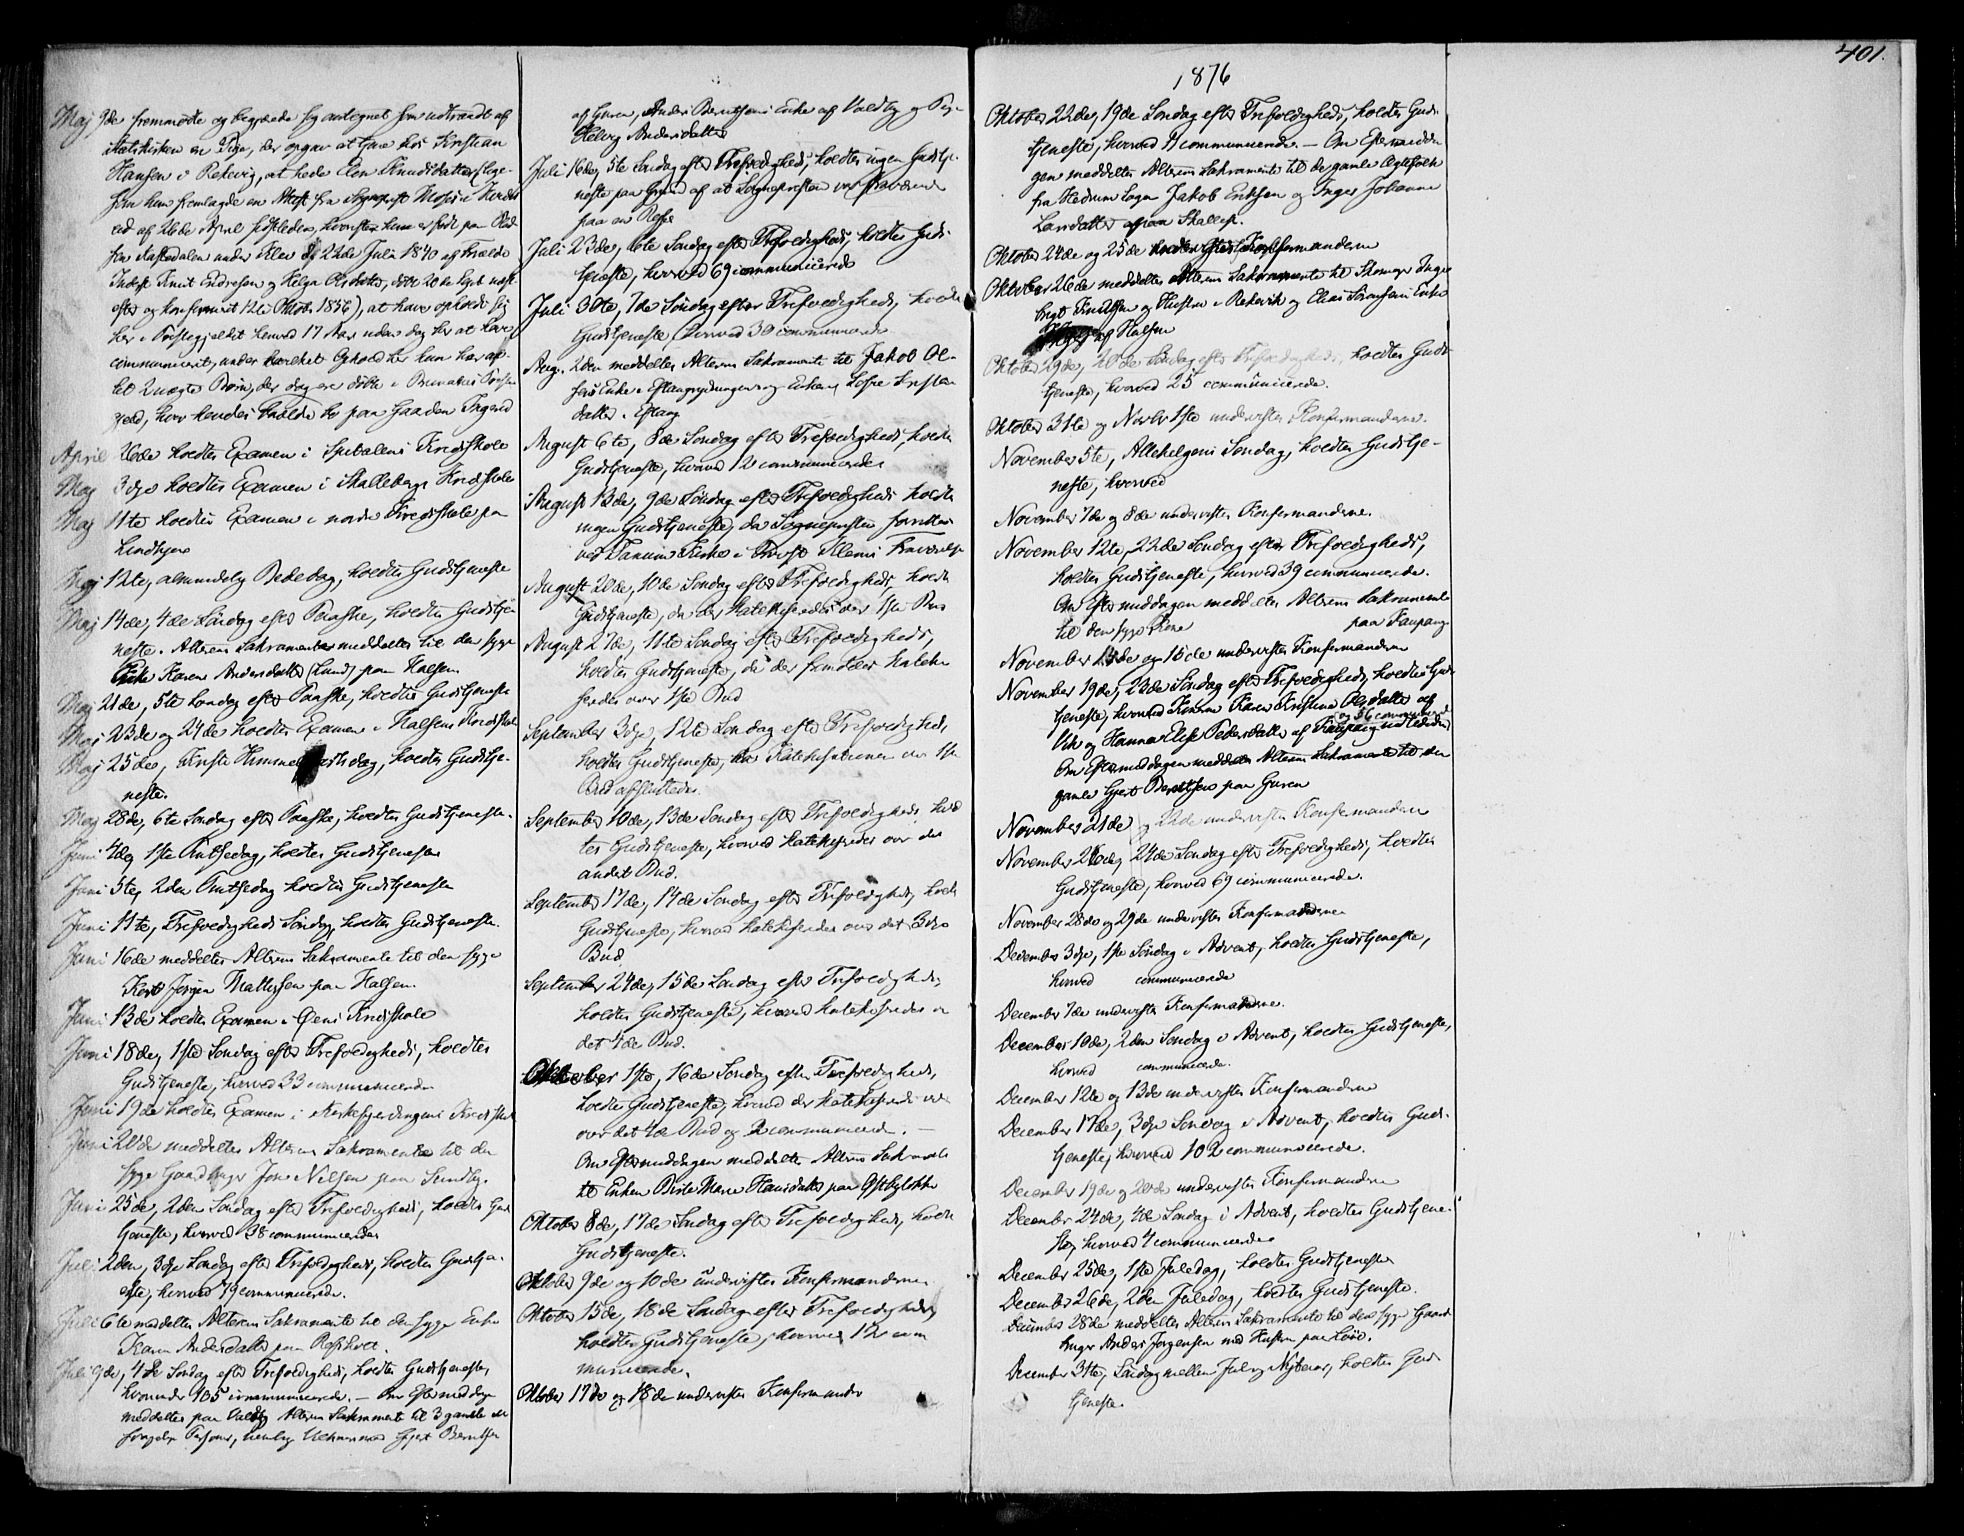 401.
1876
Maj 9de fremmødte og begjærede sig antegnet som udtraadt af
Statskirken en Pige, der opgav at tjene hos Kristian
Hansen i Rekevig, at hede Elen Knudsdatter (lige-
som hun fremlagde en Attest fra Sognepræst
af 26de April sidstleden, hvorefter hun er født paa
under Klev d. 22de Juli 1840 af Forældre
Inderst Knut Endresen og Helga Olsdatter, døbt 20de Septb. næst
efter og konfirmeret 12te Oktober 1856), at have opholdt sig
her i Præstegjeldet henved 17 Aar uden dog her at have
communiceret, under hvilket Ophold her hun har av-
let 2 uægte Børn, der dog ere døbte i Brunlanes Præste-
gjeld, hvor hendes Forældre bo paa Gaarden
April 26de holdtes Examen i Spitalens Kredsskole
Maj 3die holdtes Examen i Skallebergs Kredsskole
Maj 11te holdtes Examen i nordre Kredsskole paa
Lindhjem
Maj 12te, almindelig Bededag, holdtes Gudstjeneste
Maj 14de, 4de Søndag efter Paaske, holdtes Gudstje-
neste. Alterens Sakramente meddeltes til den syge
Enke Karen Andersdatter (Lund) paa Halsen.
Maj 21de, 5te Søndag efter Paaske, holdtes Gudstjeneste
Maj 23de og 24de holdtes Examen i Halsens Kredsskole
Maj 25de, Kristi Himmelfartsdag, holdtes Gudstje-
neste.
Maj 28de, 6te Søndag efter Paaske, holdtes Gudstjeneste.
Juni 4de, 1ste Pintsedag, holdtes Gudstjeneste
Juni 5te, 2den Pintsedag holdtes Gudstjeneste
Juni 11te, Trefoldigheds Søndag, holdtes Gudstjeneste.
Juni 16de meddeltes Alterens Sakramente til den syge
Jørgen Mathissen paa Halsen.
Juni 13de holdtes Examen i Øens Kredsskole
Juni 18de, 1ste Søndag efter Trefoldigheds, holdtes
Gudstjeneste, hvorved 33 communicerede
Juni 19de holdtes Examen i Kirkefjerdingens Kredsskole
Juni 20de meddeltes Alterens Sakramente til den
syge Gaardbruger Jon Nilsen paa Sundby.
Juni 25de, 2den Søndag efter Trefoldigheds, holdtes Guds-
tjeneste, hvorved 38 communicerede
Juli 2den, 3die Søndag efter Trefoldigheds, holdtes Gudstje-
este, hvorved 79 communicerede.
Juli 6te meddeltes Alterens Sakramente til den syge Enke
Karen Andersdatter paa
Juli 9de, 4de Søndag efter Trefoldigheds, holdtes Gudstjeneste,
hvorunder 105 communicerede. — Om Eftermiddagen
meddeltes paa Valby Alterens Sakrament til 3 gamle
Personer, nemlig Gjert Berntsen
af Guren, Anders Berntsens Enke af Valby og Pige
Helvig Andersdatter
Juli 16de, 5te Søndag efter Trefoldigheds, holdtes ingen Gudstje-
neste paa Grund af at Sognepresten var fraværende
paa en Reise
Juli 23de, 6te Søndag efter Trefoldigheds, holdtes Guds-
tjeneste, hvorved 69 communicerede
Juli 30te, 7de Søndag efter Trefoldigheds, holdtes
Gudstjeneste, hvorved 30 communicerede
Aug. 2den meddeltes Alterens Sakramente til Jakob Ol-
sens Enke i Eftangrydningen og Enken
datter i Eftang.
August 6te, 8de Søndag efter Trefoldigheds, holdtes
Gudstjeneste, hvorved 12 communicerede
August 13de, 9de Søndag efter Trefoldigheds holdtes
ingen Gudstjeneste, da Sognepresten forrettede
ved Tanum Kirke i Provst Fraværelse
August 20de, 10de Søndag efter Trefoldigheds, holdtes
Gudstjeneste, da der katekiseredes over 1ste Bud
August 27de, 11te Søndag efter Trefoldigheds,
holdtes Gudstjeneste, da der fremdeles kateki-
seredes over 1ste Bud
September 3die, 12te Søndag efter Trefoldigheds,
holdtes Gudstjeneste, da Katekisationen over 1ste
Bud afsluttedes.
September 10de, 13de Søndag efter Trefoldigheds, hold-
tes Gudstjeneste, hvorved katekiseredes over det
andet Bud.
September 17de, 14de Søndag efter Trefoldigheds, holdtes
Gudstjeneste, hvorved katekiseredes over det 3die
Bud.
September 24de, 15de Søndag efter Trefoldigheds,
holdtes Gudstjeneste, hvorved katekiseredes over
det 4de Bud.
Oktober 1ste, 16de Søndag efter Trefoldigheds,
holdtes Gudstjeneste, hvorved der katekiseredes
over det 4de Bud og 2 communicerede. —
Om Eftermiddagen meddeltes Alterens Sakramente
til Enken Birte Marie Hansdatter paa Østbyløkke
Oktober 8de, 17de Søndag efter Trefoldigheds, holdtes
Gudstjeneste.
Oktober 9de og 10de undervistes Konfirmanderne
Oktober 15de, 18de Søndag efter Trefoldigheds,
holdtes Gudstjeneste, hvorved 12 com-
municerede.
Oktober 17de og 18de undervistes Konfirmander
Oktober 22de, 19de Søndag efter Trefoldigheds, holdtes Guds-
tjeneste, hvorved 11 communicerede. — Om Eftermidda-
gen meddeltes Alterens Sakramente til de gamle Ægtefolk
fra Hedrum Sogn Jakob Eriksen og Inger Johanne
Larsdatter
Oktober 24de og 25de undervistes Konfirmanderne
Oktober 26de meddeltes Alterens Sakramente til Skomager Inge-
brigt Knudsen og Hustru i Rekevik og Elias Sørensens Enke
af Halsen
Oktober 29de, 20de Søndag efter Trefoldigheds, holdtes Guds-
tjeneste, hvorved 25 communicerede.
Oktober 31te og Novbr 1ste undervistes Konfirmanderne.
November 5te, Allehelgens Søndag, holdtes Gudstje-
neste, hvorved
November 7de og 8de undervistes Konfirmanderne.
November 12te, 22de Søndag efter Trefoldigheds,
holdtes Gudstjeneste, hvorved 39 communicerede.
Om Eftermiddagen meddeltes Alterens Sakramente
til den syge Kone paa Kaupang.
November 14de og 15de undervistes Konfirmanderne
November 19de, 23de Søndag efter Trefoldigheds, holdtes Guds-
tjeneste, hvorved Konerne Karen Kristine Olsdatter af
og 56 communicerede
Vik og Hanna Elise Pedersdatter af Kaupang indlededes
Om Eftermiddagen meddeltes Alterens Sakramente til den
gamle Gjert Berntsen paa Guren
November 21de og 22de undervistes Konfirmanderne
November 26de, 24de Søndag efter Trefoldigheds, holdtes
Gudstjeneste, hvorved 69 communicerede.
November 28de og 29de undervistes Konfirmanderne
December 3die, 1ste Søndag i Advent, holdtes Gudstjeneste,
hvorved communicerede
December 7de undervistes Konfirmanderne.
December 10de, 2den Søndag i Advent, holdtes Gudstjeneste,
hvorved communicerede.
December 12te og 13de undervistes Konfirmanderne
December 17de, 3die Søndag i Advent, holdtes Guds-
tjeneste, hvorved 102 communicerede.
December 19de og 20de undervistes Konfirmanderne
December 24de, 4de Søndag i Advent, holdtes Gudstjene-
ste, hvorved 4 communicerede
December 25de, 1ste Juledag, holdtes Gudstjeneste
December 26de, 2den Juledag, holdtes Gudstjeneste.
December 28de meddeltes Alterens Sakramente til den syge Gaard-
bruger Anders Jørgensen med Hustru paa
December 31te, Søndag mellem Jul og Nytaar, holdtes Guds-
tjeneste.